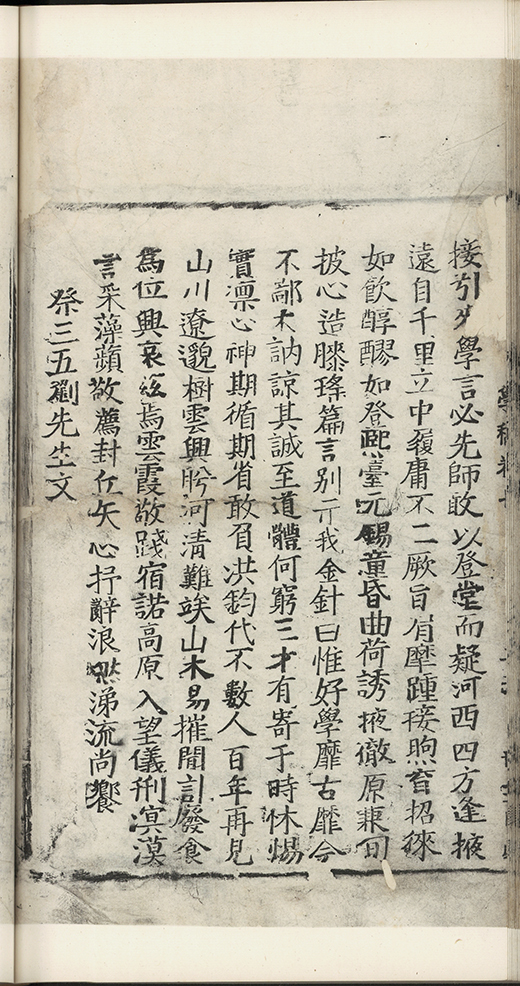 接引夕學言必先師敢以登堂而疑河西四方逢掖
遠自千里立中履庸不二厥旨肩摩踵接煦育招徠
如飲醇醪如登熙臺元錫童昏曲荷誘掖徹原兼旬
披心造膝瑤篇言別示我金針曰惟好學靡古靡今
不鄙木訥諒其誠至道體何窮三才有寄于時怵惕
實凛心神期循期省敢負洪鈞代不數人百年再見
山川遼邈樹雲興盻河清難竢山木易摧聞訃廢食
為位興哀茲焉雲霞敬踐宿諾高原入望儀刑溟漠
言采藻蘋敬薦封丘矢心抒辭淚涕流尚饗
祭三五劉先生文